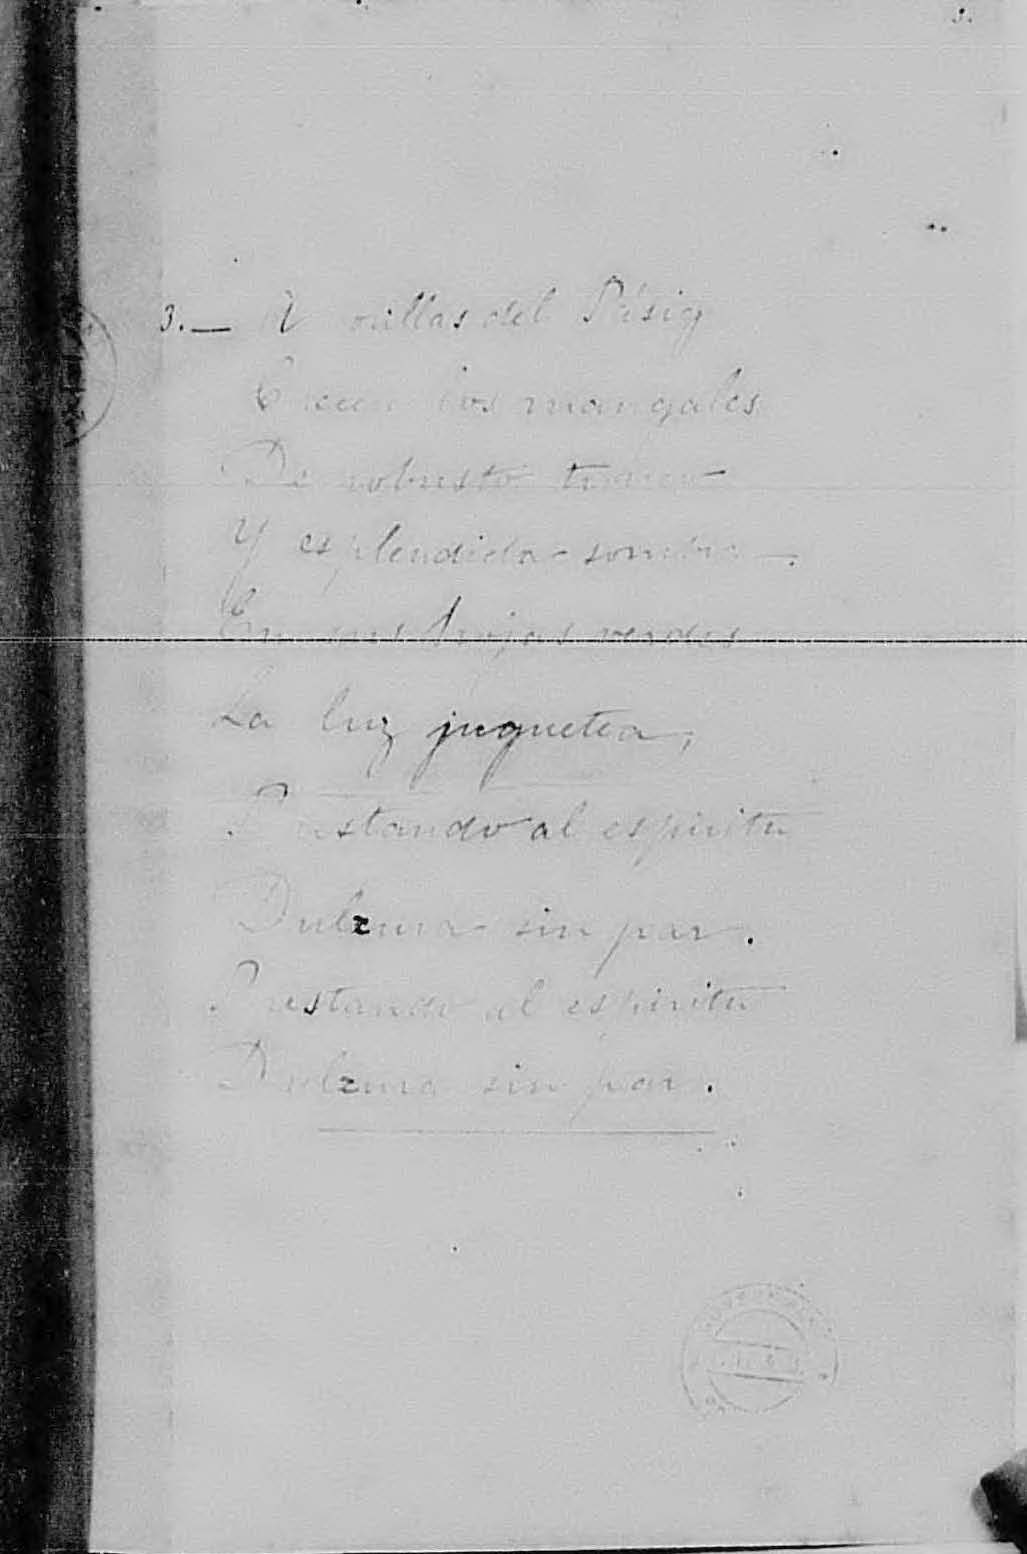 3.
3.— A orillas del Pásig
Crecen los mangales
De robusto tronco
Y esplendida sombra.
En sus hojas verdes
La luz juguetea,
Prestando al espiritu
Dulzura sin par.
Prestando al espiritu
Dulzura sin par.